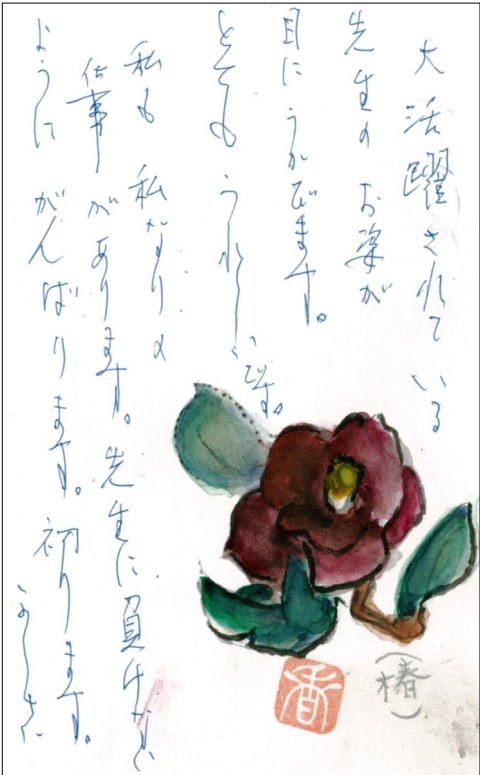 大活躍されている
先生のお姿が
目にうかびます。
とても うれしいです。
私も 私なりの
仕事があります。先生に負けない
ように がんばります。
かしこ
(椿)
香